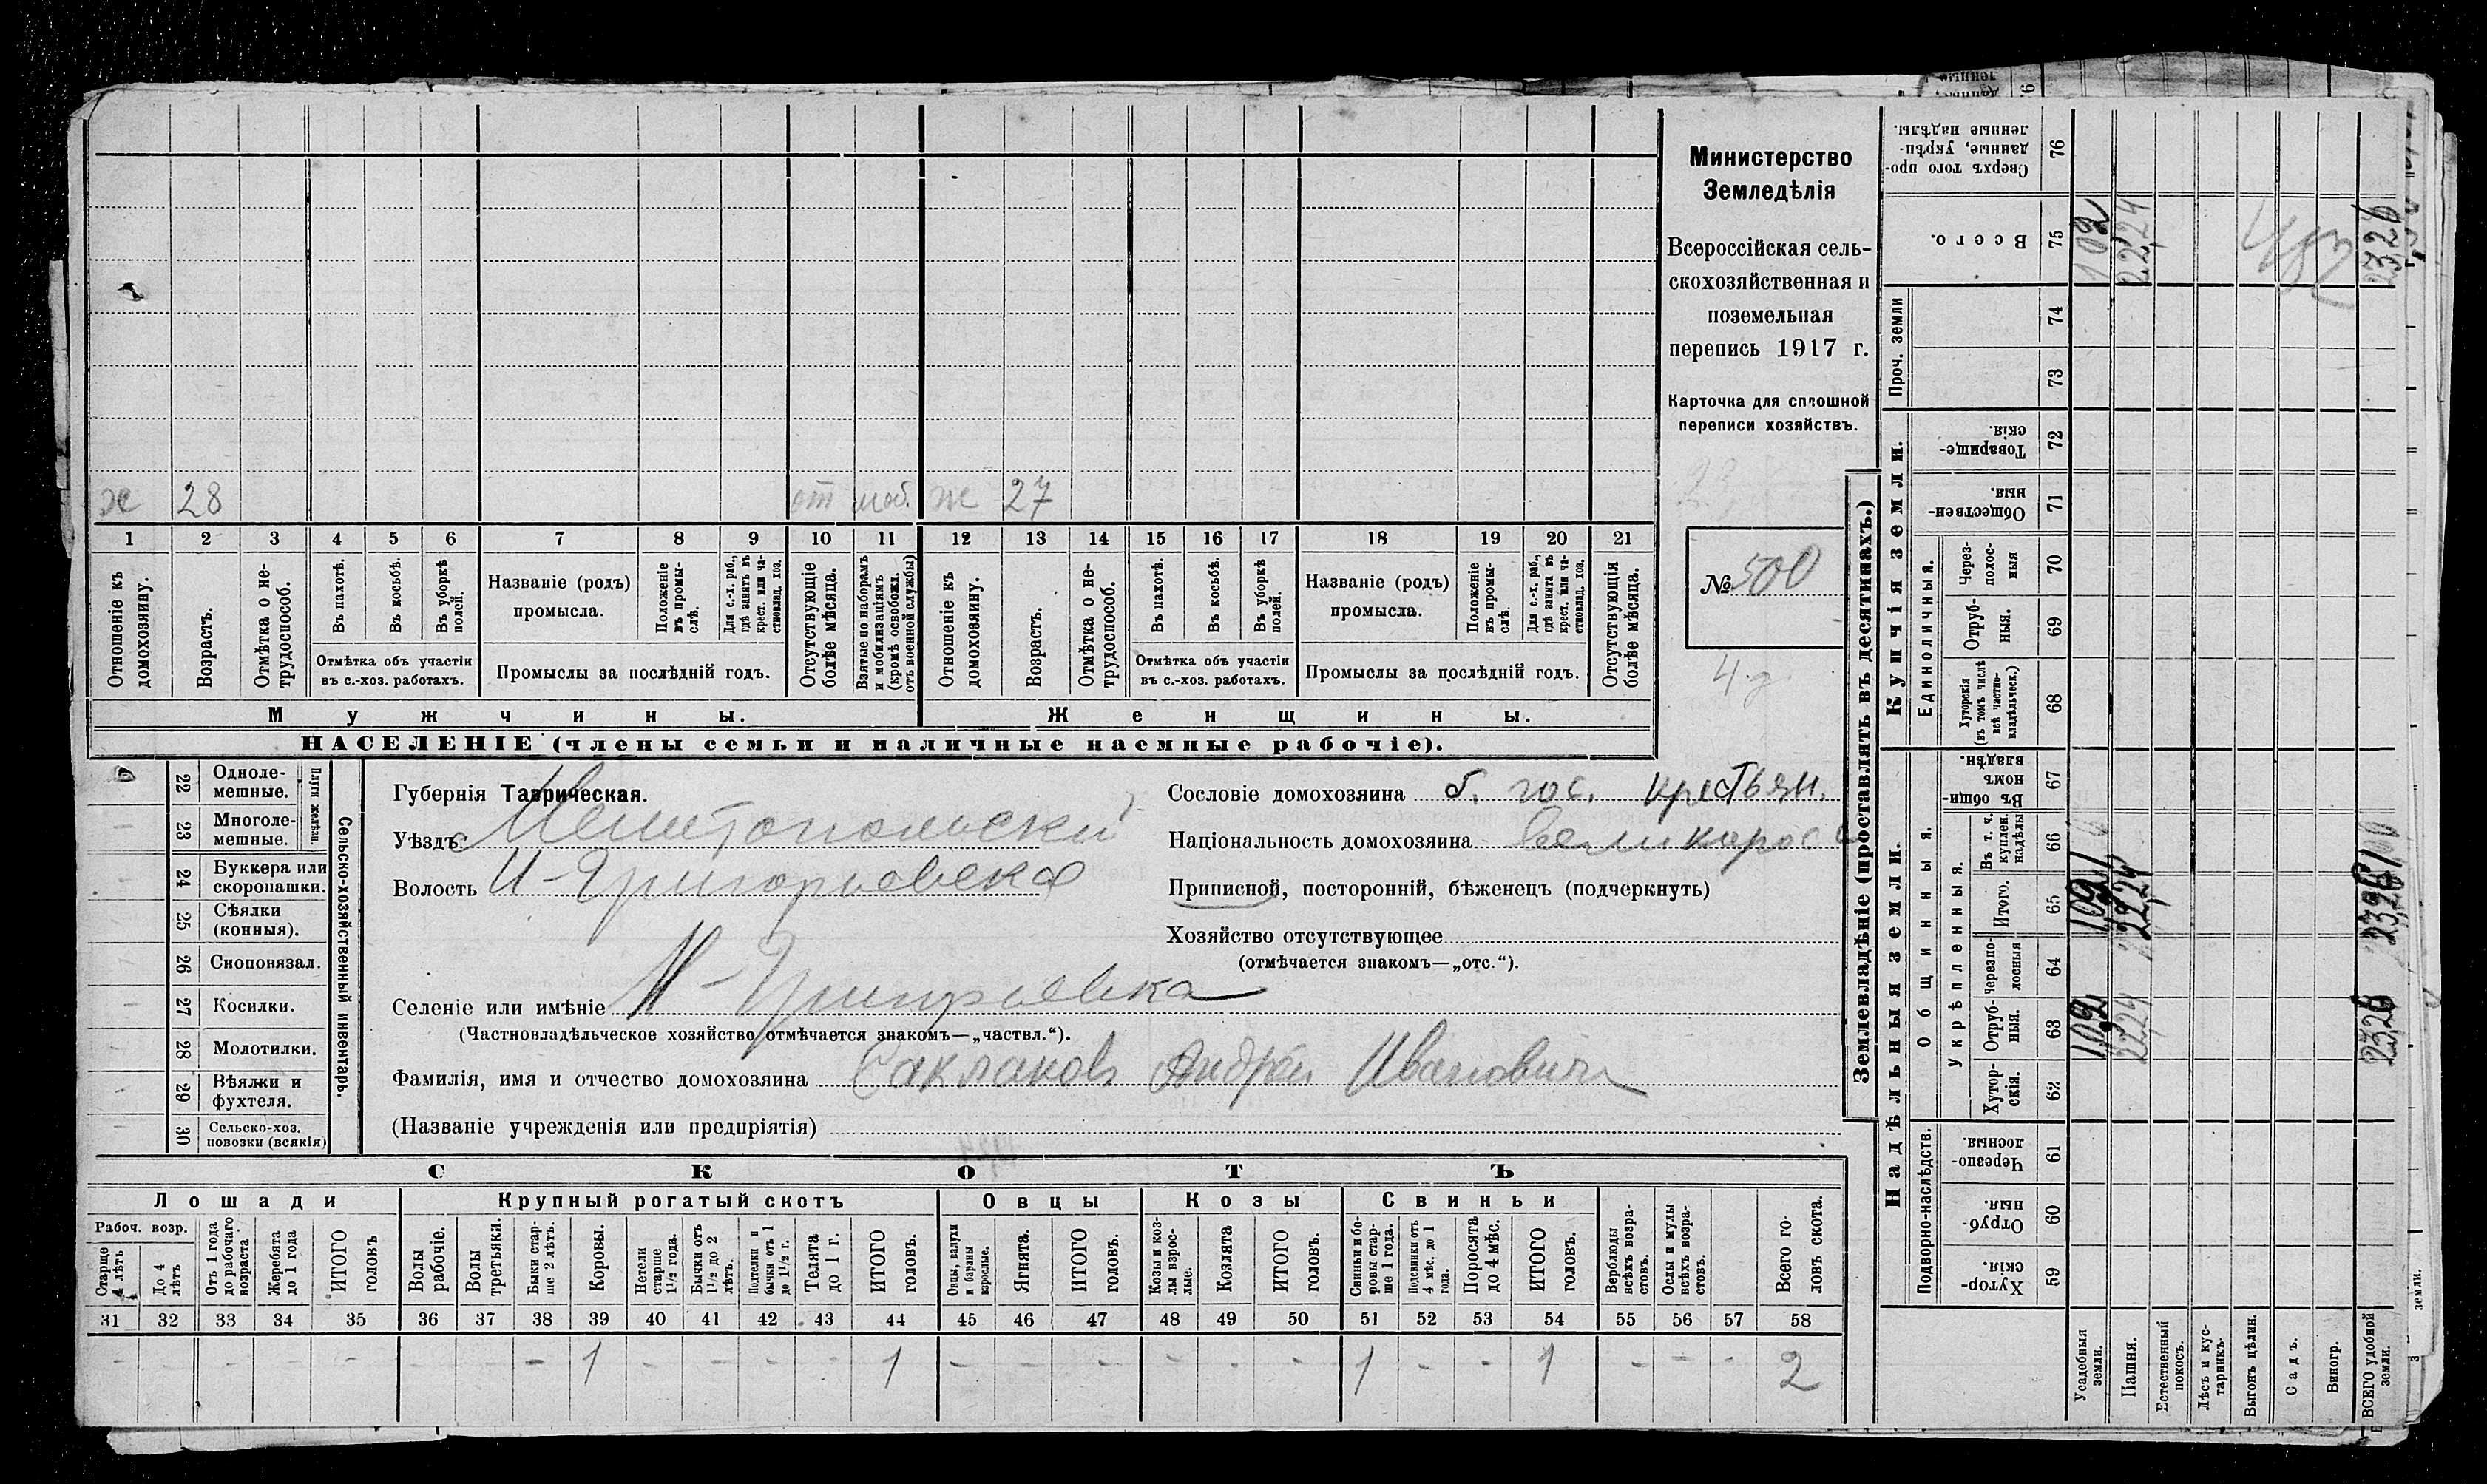 х 28 от моб. ж 27
1 2 3 4 5 6 7 8 9 10 11 12 13 14 15 16 17 18 19 20 21
Отношеніе къ домохозяину.
Возрастъ.
Отмѣтка о не-трудоспособ.
Въ пахотѣ.
Въ косьбѣ.
Въ уборкѣ полей.
Отмѣтка объ участіи
въ с.-хоз. работахъ.
Названіе (родъ)
промысла.
Положеніе въ промы-слѣ.
Для с.-х. раб., гдѣ занятъ въ крест. или ча-стновлад. хоз.
Промыслы за послѣдній годъ.
Отсутствующіе болѣе мѣсяца.
Взятые по наборамъ и мобилизаціямъ (кромѣ освобожд. отъ военной службы)
Отношеніе къ домохозяину.
Возрастъ.
Отмѣтка о не-трудоспособ.
Въ пахотѣ.
Въ косьбѣ.
Въ уборкѣ полей.
Отмѣтка объ участіи
въ с.-хоз. работахъ.
Названіе (родъ)
промысла.
Положеніе въ промы-слѣ.
Для с.-х. раб., гдѣ занята въ крест. или ча-стновлад. хоз.
Промыслы за послѣдній годъ.
Отсутствующія болѣе мѣсяца.
Мужчины. Женщины.
НАСЕЛЕНІЕ (члены семьи и наличные наемные рабочіе).
Министерство
Земледѣлія
Всероссійская сель-
скохозяйственная и
поземельная
перепись 1917 г.
Карточка для сплошной
переписи хозяйствъ.
№ 500
4 д
22 Одноле-мешные.
23 Многоле-мешные.
Плуги желѣзн.
24 Буккера или скоропашки.
25 Сѣялки (конныя).
26 Сноповязал.
27 Косилки.
28 Молотилки.
29 Вѣялки и фухтеля.
30 Сельско-хоз. повозки (всякія)
Сельско-хозяйственный инвентарь.
Губернія Таврическая.
Уѣздъ Мелитопольскій
Волость Н-Григорьевска
Селеніе или имѣніе Н-Григорьевка
(Частновладѣльческое хозяйство отмѣчается знакомъ—„частвл.“).
Фамилія, имя и отчество домохозяина Саклаковъ Андрей Ивановичъ
(Названіе учрежденія или предпріятія)
Сословіе домохозяина б. гос. крестьян.
Національность домохозяина великоросс
Приписной, посторонній, бѣженецъ (подчеркнуть)
Хозяйство отсутствующее
(отмѣчается знакомъ—„отс.“).
СКОТЪ
Лошади Крупный рогатый скотъ Овцы Козы Свиньи
Рабоч. возр.
Старше 4 лѣтъ
До 4 лѣтъ
Отъ 1 года до рабочаго возраста
Жеребята до 1 года
ИТОГО головъ
Волы рабочіе.
Волы третьяки.
Быки стар-ше 2 лѣтъ.
Коровы.
Нетели старше 1½ года.
Бычки отъ 1½ до 2 лѣтъ.
Подтелки и бычки отъ 1 до 1½ г.
Телята до 1 г.
ИТОГО головъ.
Овцы, валухи и бараны взрослые.
Ягнята.
ИТОГО головъ.
Козы и коз-лы взрос-лые.
Козлята
ИТОГО головъ.
Свиньи и бо-ровы стар-ше 1 года.
Подсвинки отъ 4 мѣс. до 1 года.
Поросята до 4 мѣс.
ИТОГО головъ.
Верблюды всѣхъ возра-стовъ.
Ослы и мулы всѣхъ возра-стовъ.
Всего го-ловъ скота.
31 32 33 34 35 36 37 38 39 40 41 42 43 44 45 46 47 48 49 50 51 52 53 54 55 56 57 58
- - - - - - - - 1 - - - - 1 - - - - - - 1 - - 1 - - - 2
Землевладѣніе (проставлять въ десятинахъ.)
Надѣльныя земли.
Купчія земли.
Проч. земли
Подворно-наслѣдств.
Общинныя.
Укрѣпленныя.
Единоличныя.
Хутор-скія. 59
Отруб-ныя. 60
Черезпо-лосныя. 61
Хутор-скія. 62
Отруб-ныя. 63
Черезпо-лосныя 64
Итого. 65
Въ т. ч. куплен. надѣлы 66
Въ общин-номъ владѣн. 67
Хуторскія (въ томъ числѣ всѣ частно-владѣльческ.) 68
Отруб-ныя. 69
Через-полос-ныя 70
Обществен-ныя. 71
Товарище-скія. 72
73
74
Всего. 75
Сверхъ того про-данные, укрѣп-ленные надѣлы. 76
Усадебныя земли. 1,02 1,02 1,02
Пашня. 22,24 22,24 22,24
Естественный покосъ.
Лѣсъ и кус-тарникъ.
Выгонъ цѣлин.
Садъ.
Виногр.
ВСЕГО удобной земли. 23,26 23,26 23,26
земли.